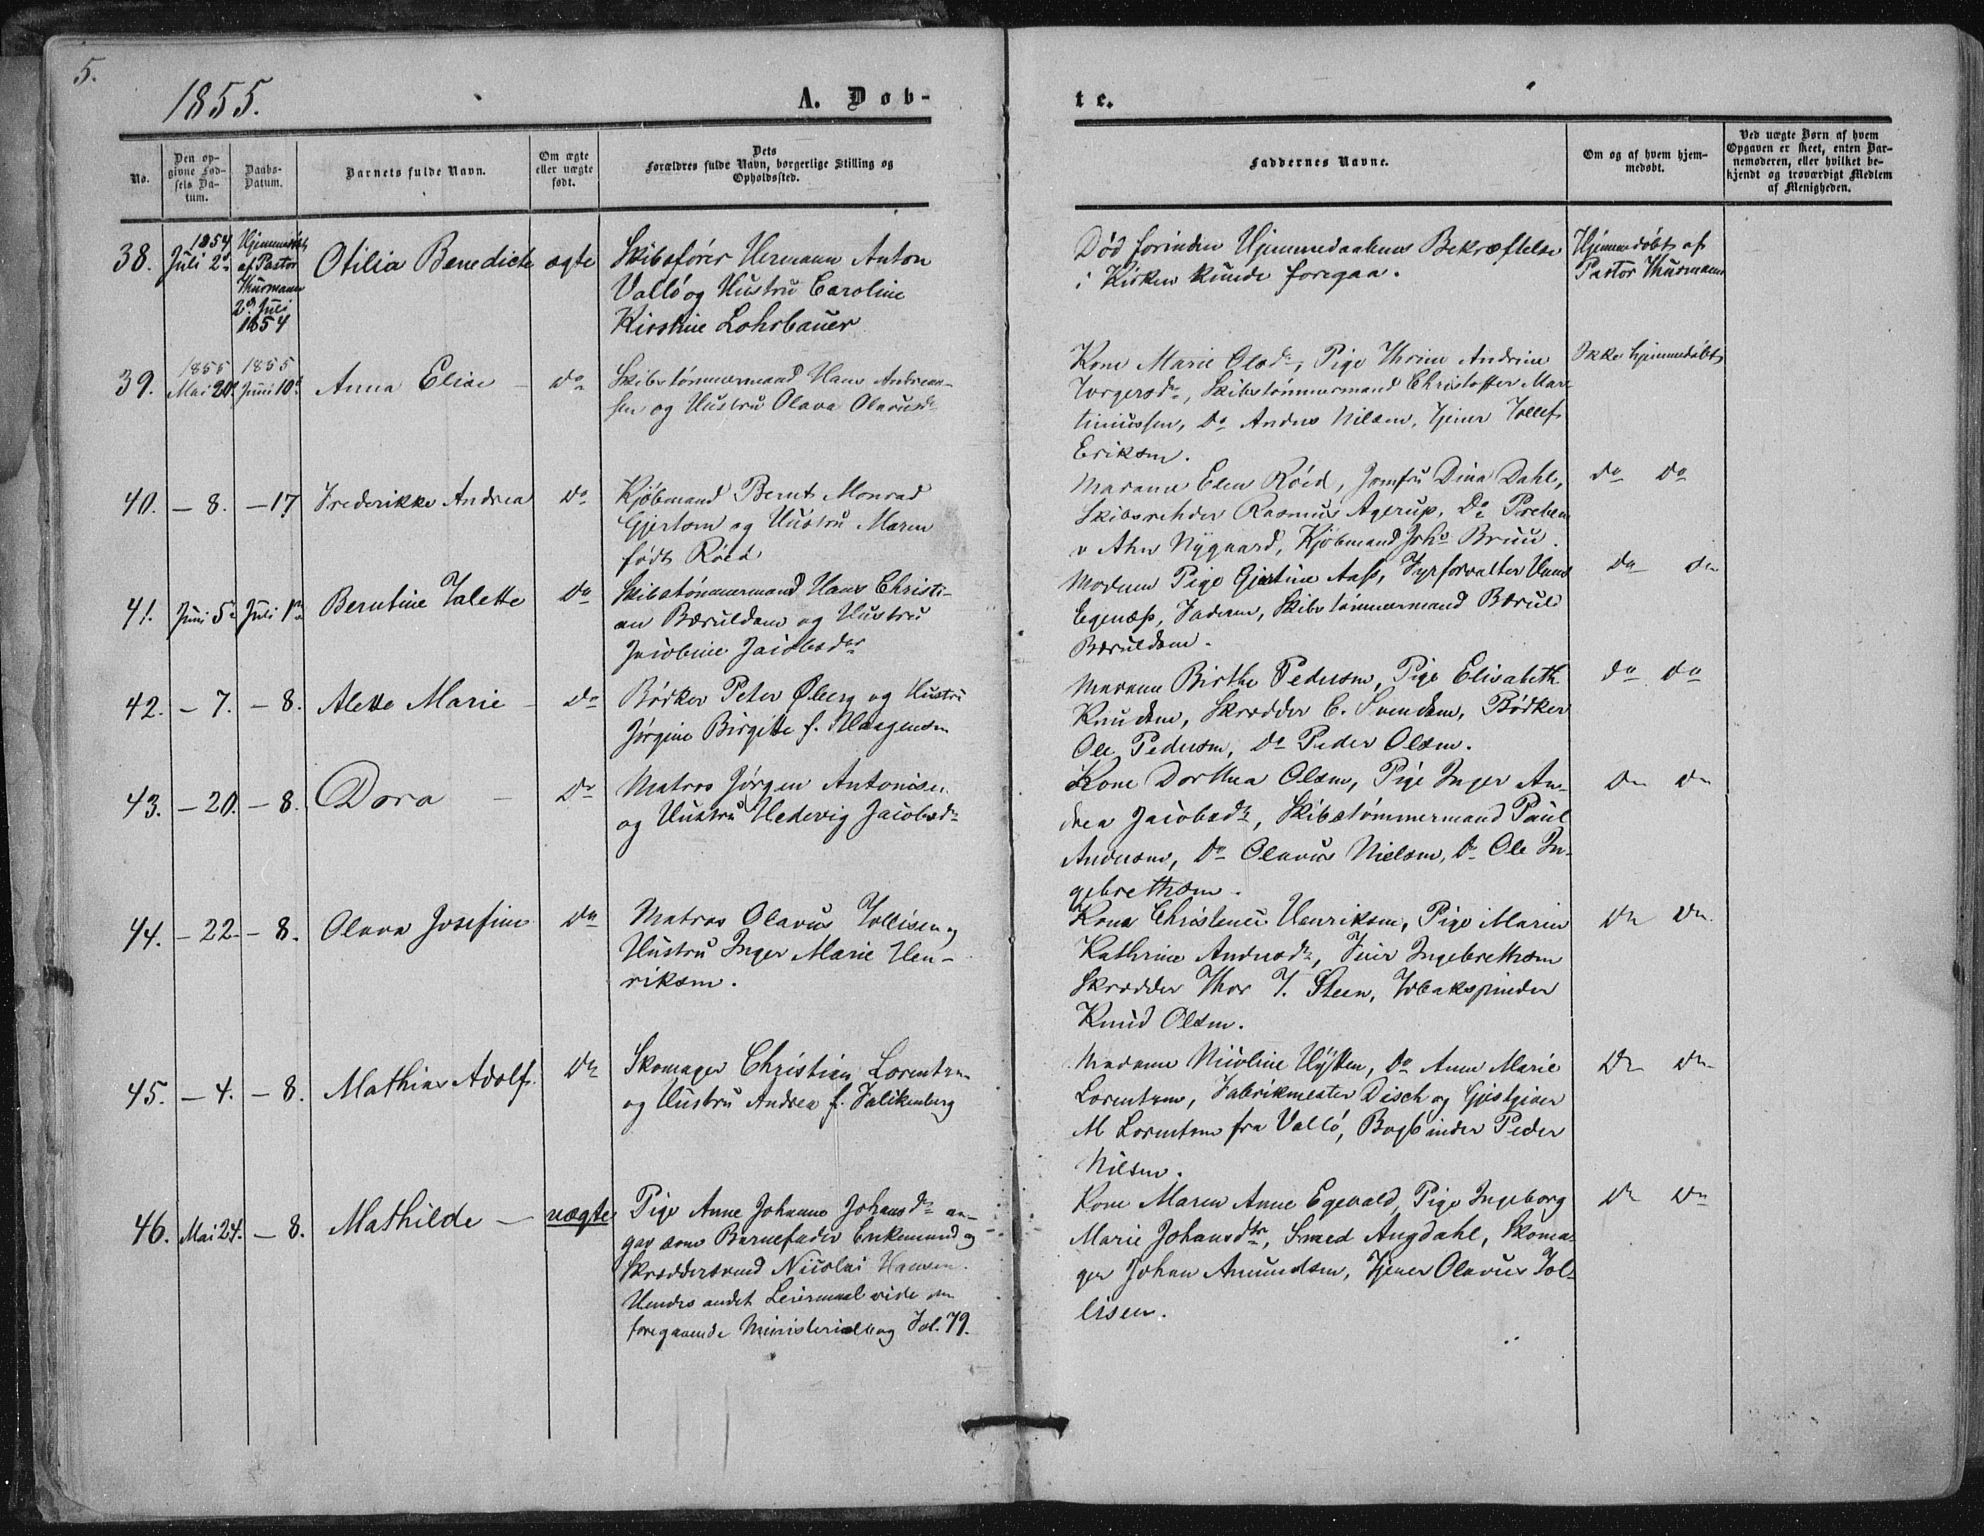 5.
1855.
A. Døb-
te.
No.
Den op-
givne Fød-
sels Da-
tum.
Daabs-
Datum.
Barnets fulde Navn.
Om ægte
eller uægte
født.
Dets
Forældres fulde Navn, borgerlige Stilling og
Opholdssted.
Faddernes Navne.
Om og af hvem hjem-
medøbt.
Ved uægte Børn af hvem
Opgaven er skeet, enten Bar-
nemoderen, eller hvilket be-
kjendt og troværdigt Medlem
af Menigheden.
38.
1854
Juli 2d
Hjemmedøbt
af Pastor
Thurmann
2d Juli
1854
Otilia Benedicte
ægte
Skibsfører Hermann Anton
Vallø og Hustru Caroline
Kirstine Lohrbauer
Død forinden Hjemmedaabens Bekræftelse
i Kirken kunde foregaa.
Hjemmedøbt af
Pastor Thurmann
39.
1855
Mai 20.
1855
Juni 10d
Anna Elise —
do
Skibstømmermand Hans Andreas-
sen og Hustru Olava Olausd.
Kone Marie Olsdr, Pige Thrine Andrine
Torgersdr, Skibstømmermand Christoffer Mar-
tiniussen, Do Anders Nilsen, Tjener Tollef
Eriksen.
Ikke hjemmedøbt
40.
— 8.
— 17
Frederikke Andrea
do
Kjøbmand Bernt Monrad
Gjertsen og Hustru Maren
født Røed
Madame Elen Røed, Jomfru Dina Dahl,
Skibsrehder Rasmus Agerup, Do Preben
v Ahn Nygaard, Kjøbmand Johs Bruu.
do do
41.
Juni 5.
Juli 1ste
Berntine Valette
do
Skibstømmermand Hans Christi-
an Bæruldsen og Hustru
Jacobine Jacobsdtr
Moderen Pige Gjertine Aass, Fyrforvalter Hans
Egenæss, Faderen, Skibstømmermand Bæruld
Bæruldsen.
do do
42.
— 7.
— 8.
Alette Marie —
do
Bødker Peter Øberg og Hustru
Jørgine Birgitte f. Haagensen
Madame Birthe Pedersen, Pige Elisabeth
Knudsen, Skrædder C. Svendsen, Bødker
Ole Pedersen, Do Peder Olsen.
do do
43.
— 20.
— 8.
Dora —
do
Matros Jørgen Antonisen
og Hustru Hedevig Jacobsdr
Kone Dorthea Olsen, Pige Inger An-
drea Jacobsdr, Skibstømmermand Paul
Andersen, Do Olavus Nielsen, Do Ole In-
gebrethsen.
do do
44.
— 22
— 8.
Olava Josefine
do
Matros Olavus Tollisen og
Hustru Inger Marie Hen-
riksen.
Kone Christence Henriksen, Pige Maren
Kathrine Andersdr, Ingebrethsen
Skrædder Thor T. Steen, Tobakspinder
Knud Olsen.
do do
45.
— 4.
— 8.
Mathias Adolf.
do
Skomager Christian Lorentzen
og Hustru Andrea f. Falikenberg
Madame Nicoline Hytten, Do Anne Marie
Lorentzen, Fabrikmester Disch og Gjestgiver
M Lorentzen fra Vallø, Bogbinder Peder
Nilsen.
do do
46.
Mai 24.
— 8.
Mathilde —
uægte
Pige Anne Johanne Johansdr an-
gav som Barnefader Enkemand og
Skræddersvend Nicolai Hansen.
Hendes andet Leiermaal vide den
foregaaende Ministerialbog Fol. 79.
Kone Maren Anne Egevald, Pige Ingeborg
Marie Johansdtr, Smed Angdahl, Skoma-
ger Johan Amundsen, Tjener Olavus Tol-
lisen.
do do